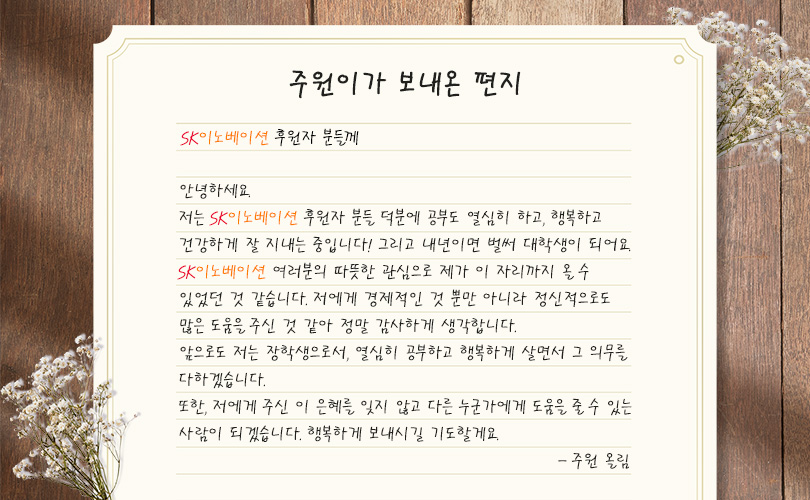 주원이가 보내온 편지
SK이노베이션 후원자 분들께
안녕하세요.
저는 SK이노베이션 후원자 분들 덕분에 공부도 열심히 하고, 행복하고
건강하게 잘 지내는 중입니다! 그리고 내년이면 벌써 대학생이 되어요.
SK이노베이션 여러분의 따뜻한 관심으로 제가 이 자리까지 올 수
있었던 것 같습니다. 저에게 경제적인 것 뿐만 아니라 정신적으로도
많은 도움을 주신 것 같아 정말 감사하게 생각합니다.
앞으로도 저는 장학생으로서, 열심히 공부하고 행복하게 살면서 그 의무를
다하겠습니다.
또한, 저에게 주신 이 은혜를 잊지 않고 다른 누군가에게 도움을 줄 수 있는
사람이 되겠습니다. 행복하게 보내시길 기도할게요.
- 주원 올림